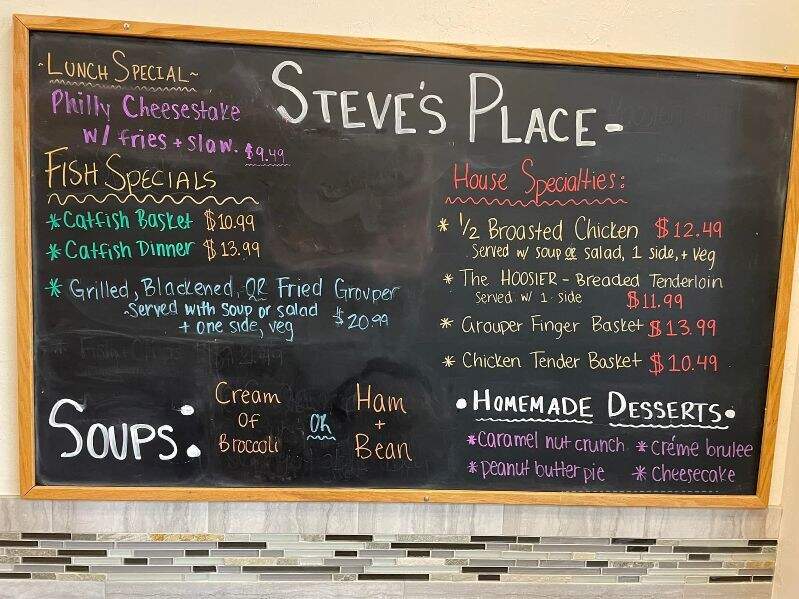 ~LUNCH SPECIAL~
Philly Cheesestake
w/ fries + slaw. $9.49
STEVE'S PLACE-
FISH SPECIALS
*Catfish Basket $10.99
*Catfish Dinner $13.99
* Grilled, Blackened, OR Fried Grouper
~Served with soup or salad
+ one side, veg $20.99
House Specialties:
* 1/2 Broasted Chicken $12.49
Served w/ soup or salad, 1 side, + veg
* The HOOSIER - Breaded Tenderloin
Served w/ 1 side $11.99
* Grouper Finger Basket $13.99
* Chicken Tender Basket $10.49
SOUPS:
Cream
Of
Broccoli
OR
Ham
+
Bean
• HOMEMADE DESSERTS •
*Caramel nut crunch *Créme brulee
*peanut butter pie * Cheesecake